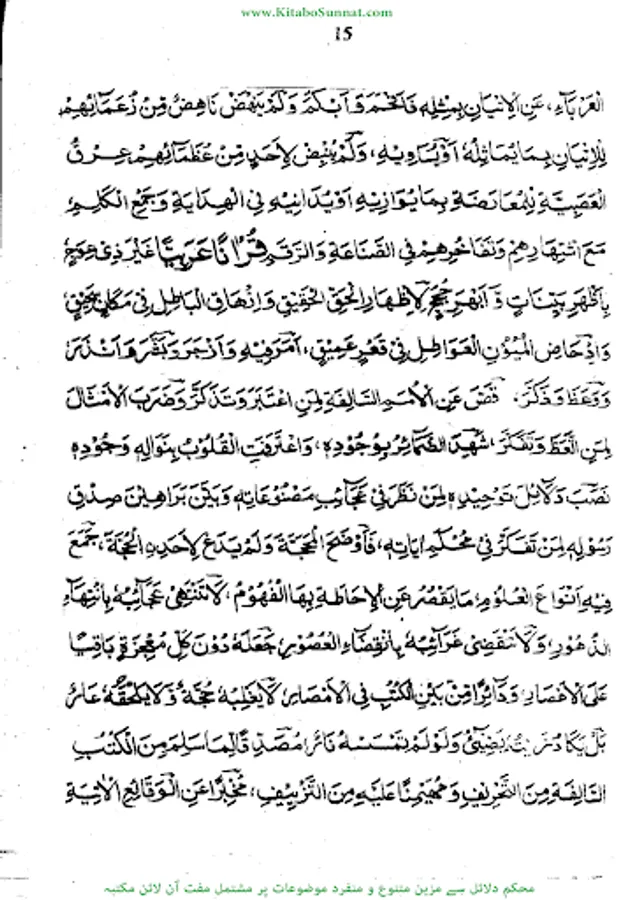 www.KitaboSunnat.com
15
الْعَرْبَآءِ، عَنِ الْإِتْيَانِ بِمِثْلِهٖ فَأَفْحَمَ وَأَبْكَمَ وَلَمْ يَنْهَضْ نَاهِضٌ مِّنْ زُعَمَائِهِمْ
لِلْإِتْيَانِ بِمَا يُمَاثِلُهٗ أَوْ يُسَاوِيْهِ، وَلَمْ يَنْبِضْ لِأَحَدٍ مِّنْ عُظَمَائِهِمْ عِرْقُ
الْعَصَبِيَّةِ لِلْمُعَارَضَةِ بِمَا يُوَازِيْهِ أَوْ يُدَانِيْهِ فِي الْهِدَايَةِ وَجَمْعِ الْكَلِمِ
مَعَ اشْتِهَارِهِمْ وَتَفَاخُرِهِمْ فِي الصَّنَاعَةِ وَالرَّقَمِ قُرْاٰنًا عَرَبِيًّا غَيْرَ ذِيْ عِوَجٍ
بِأَظْهَرِ بَيِّنَاتٍ وَّأَبْهَرِ حُجَجٍ لِإِظْهَارِ الْحَقِّ الْحَقِيْقِ وَإِزْهَاقِ الْبَاطِلِ فِيْ مَكَانٍ سَحِيْقٍ
وَإِدْحَاضِ الْمُيُوْنِ الْعَوَاطِلِ فِيْ قَعْرٍ عَمِيْقٍ، أَمَرَ فِيْهِ وَأَزْجَرَ وَبَشَّرَ وَأَنْذَرَ
وَوَعَظَ وَذَكَّرَ، قَصَّ عَنِ الْأُمَمِ السَّالِفَةِ لِمَنِ اعْتَبَرَ وَتَذَكَّرَ وَضَرَبَ الْأَمْثَالَ
لِمَنِ اتَّعَظَ وَتَفَكَّرَ، شَهِدَ الضَّمَائِرُ بِوُجُوْدِهٖ، وَاعْتَرَفَتِ الْقُلُوْبُ بِنَوَالِهٖ وَجُوْدِهٖ
نَصَبَ دَلَائِلَ تَوْحِيْدِهٖ لِمَنْ نَظَرَ فِيْ عَجَائِبِ مَصْنُوْعَاتِهٖ وَبَيَّنَ بَرَاهِيْنَ صِدْقِ
رَسُوْلِهٖ لِمَنْ تَفَكَّرَ فِيْ مُحْكَمِ اٰيَاتِهٖ، فَأَوْضَحَ الْمَحَجَّةَ وَلَمْ يَدَعْ لِأَحَدِهِ الْحُجَّةَ، جَمَعَ
فِيْهِ أَنْوَاعَ الْعُلُوْمِ مَا يَقْصُرُ عَنِ الْإِحَاطَةِ بِهَا الْفُهُوْمُ، لَا تَنْتَهِيْ عَجَائِبُهٗ بِانْتِهَآءِ
الدُّهُوْرِ، وَلَا تَنْقَضِيْ غَرَائِبُهٗ بِانْقِضَآءِ الْعُصُوْرِ، جَعَلَهٗ دُوْنَ كُلِّ مُعْجِزَةٍ بَاقِيًا
عَلَى الْأَعْصَارِ، وَدَائِرًا مِّنْ بَيْنِ الْكُتُبِ فِي الْأَمْصَارِ، لَا يَغْلِبُهٗ حُجَّةٌ وَّلَا يَلْحَقُهٗ عَارٌ
بَلْ يَكَادُ زَيْتُ يُضِيْئُ وَلَوْ لَمْ تَمْسَسْهُ نَارٌ، مُصَدِّقًا لِّمَا سَلِمَ مِنَ الْكُتُبِ
السَّالِفَةِ مِنَ التَّحْرِيْفِ وَمُهَيْمِنًا عَلَيْهِ مِنَ التَّزْيِيْفِ، مُخْبِرًا عَنِ الْوَقَائِعِ الْاٰتِيَةِ
محکم دلائل سے مزین متنوع و منفرد موضوعات پر مشتمل مفت آن لائن مکتبہ